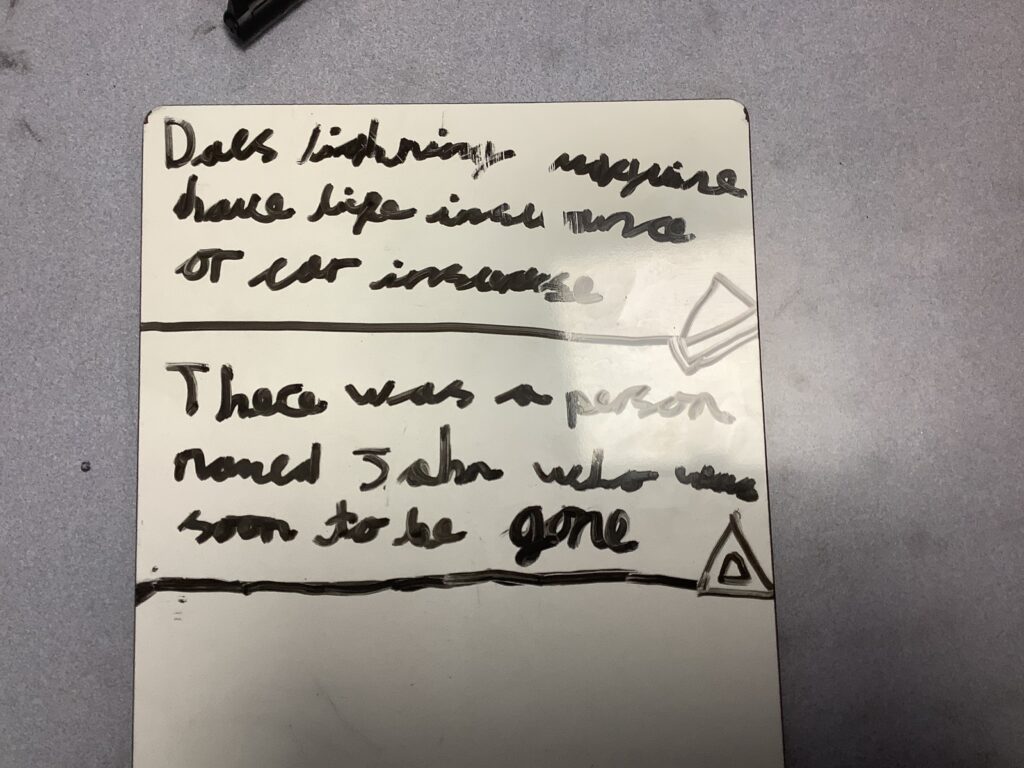 Does lightning mcqueen
have life insurance
or car insurance
There was a person
named John who was
soon to be gone